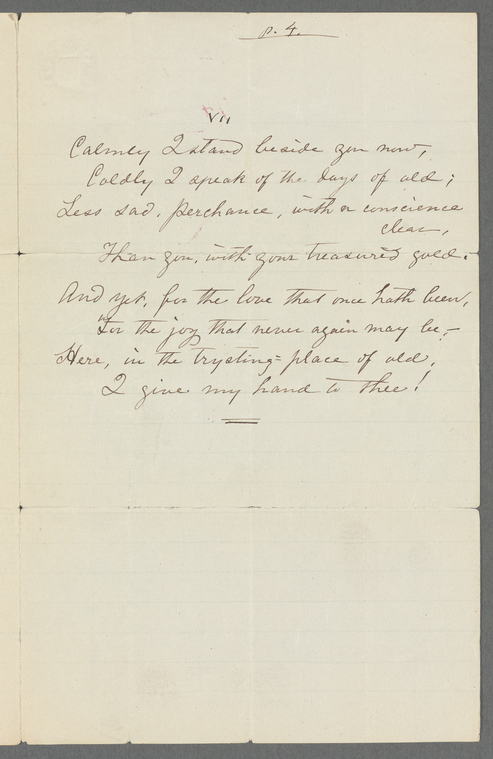 p. 4.
VII
Calmly I stand beside you now,
Coldly I speak of the days of old;
Less sad, perchance, with a conscience
clear,
Than you, with your treasured gold.
And yet, for the love that once hath been,
For the joy that never again may be,—
Here, in the trysting=place of old,
I give my hand to thee!